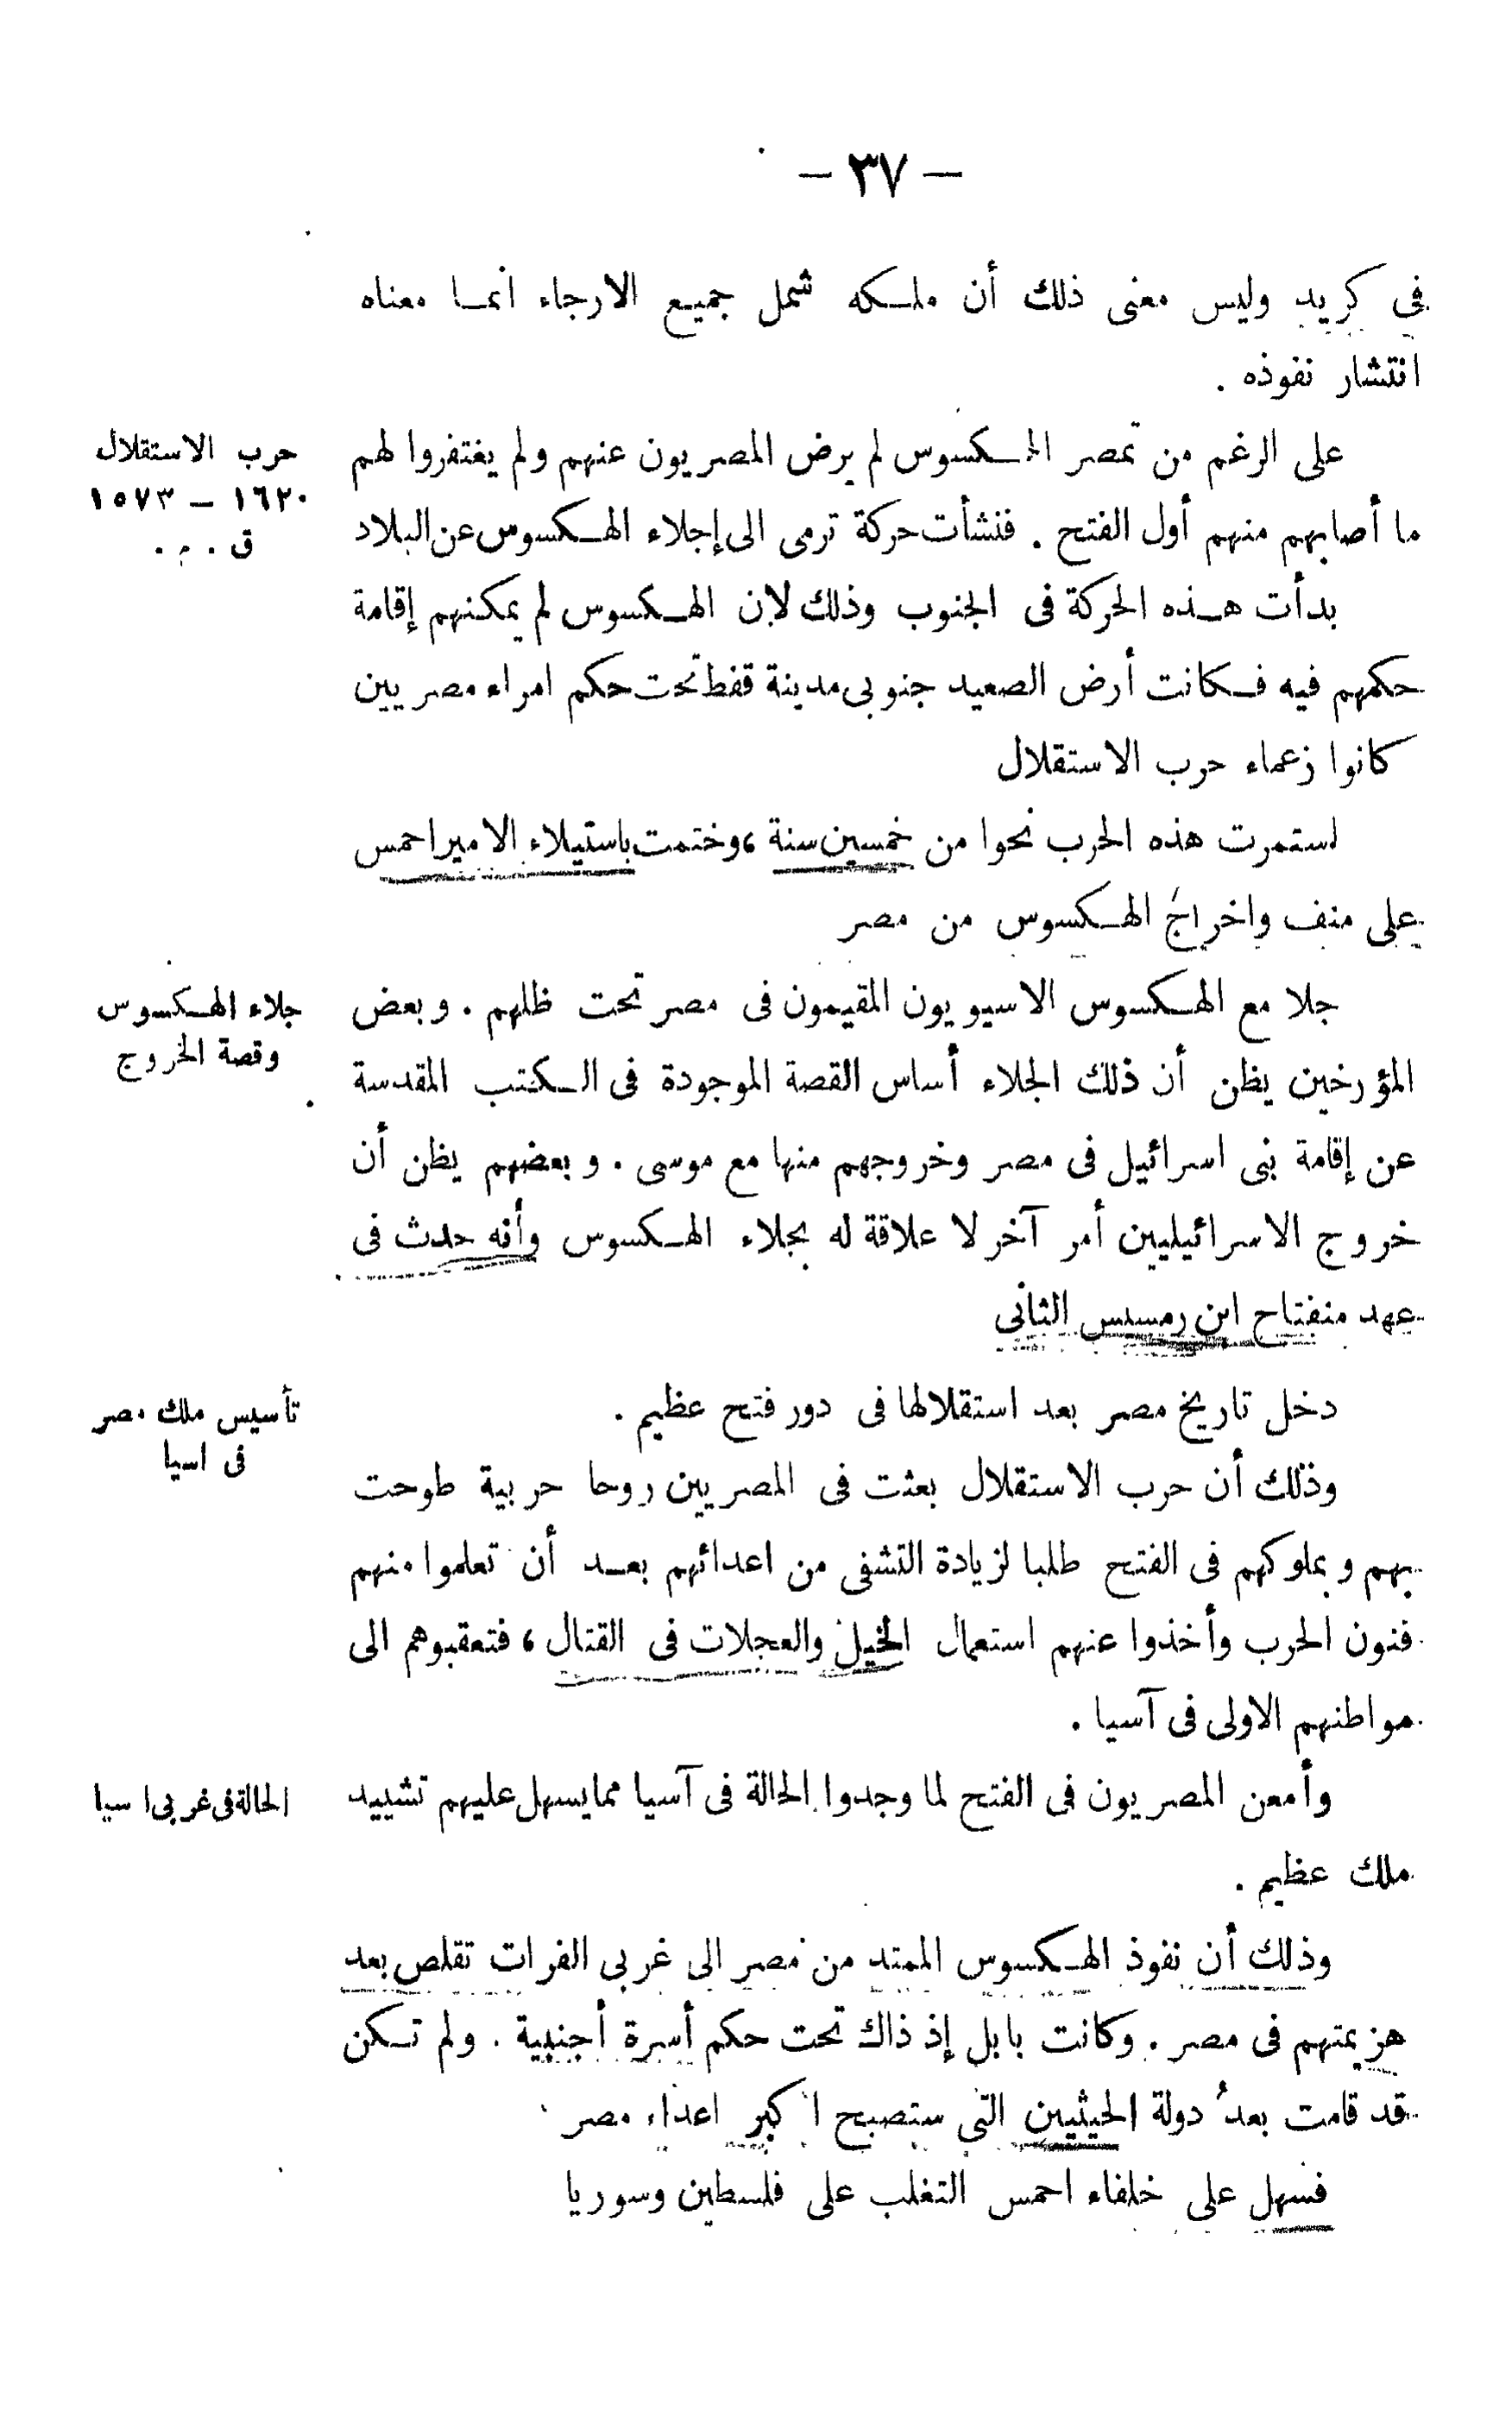 — ٣٧ —
فى كريد وليس معنى ذلك أن ملكه شمل جميع الارجاء انما معناه
انتشار نفوذه .
حرب الاستقلال
١٦٢٠ — ١٥٧٣
ق . م .
على الرغم من تمصر الهكسوس لم يرض المصريون عنهم ولم يغتفروا لهم
ما أصابهم منهم أول الفتح . فنشأت حركة ترمى الى إجلاء الهكسوس عن البلاد
بدأت هذه الحركة فى الجنوب وذلك لان الهكسوس لم يمكنهم إقامة
حكمهم فيه فكانت أرض الصعيد جنوبى مدينة قفط تحت حكم امراء مصريين
كانوا زعماء حرب الاستقلال
استمرت هذه الحرب نحوا من خمسين سنة ، وختمت باستيلاء الامير احمس
على منف واخراج الهكسوس من مصر
جلاء الهكسوس
وقصة الخروج
جلا مع الهكسوس الاسيويون المقيمون فى مصر تحت ظلهم . وبعض
المؤرخين يظن أن ذلك الجلاء أساس القصة الموجودة فى الكتب المقدسة
عن إقامة بنى اسرائيل فى مصر وخروجهم منها مع موسى . وبعضهم يظن أن
خروج الاسرائيليين أمر آخر لا علاقة له بجلاء الهكسوس وأنه حدث فى
عهد منفتاح ابن رمسيس الثانى
تأسيس ملك مصر
فى اسيا
دخل تاريخ مصر بعد استقلالها فى دور فتح عظيم .
وذلك أن حرب الاستقلال بعثت فى المصريين روحا حربية طوحت
بهم وبملوكهم فى الفتح طلبا لزيادة التشفى من اعدائهم بعد أن تعلموا منهم
فنون الحرب وأخذوا عنهم استعمال الخيل والعجلات فى القتال ، فتعقبوهم الى
مواطنهم الاولى فى آسيا .
الحالة فى غربى اسيا
وأمعن المصريون فى الفتح لما وجدوا الحالة فى آسيا مما يسهل عليهم تشييد
ملك عظيم .
وذلك أن نفوذ الهكسوس الممتد من مصر الى غربى الفرات تقلص بعد
هزيمتهم فى مصر . وكانت بابل إذ ذاك تحت حكم أسرة أجنبية . ولم تكن
قد قامت بعدُ دولة الحيثيين التى ستصبح اكبر اعداء مصر
فسهل على خلفاء احمس التغلب على فلسطين وسوريا